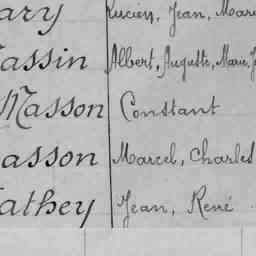 ary Lucien, Jean, Marc
assin Albert, Auguste, Marie, J
Masson Constant
asson Marcel, Charles
athey Jean, René